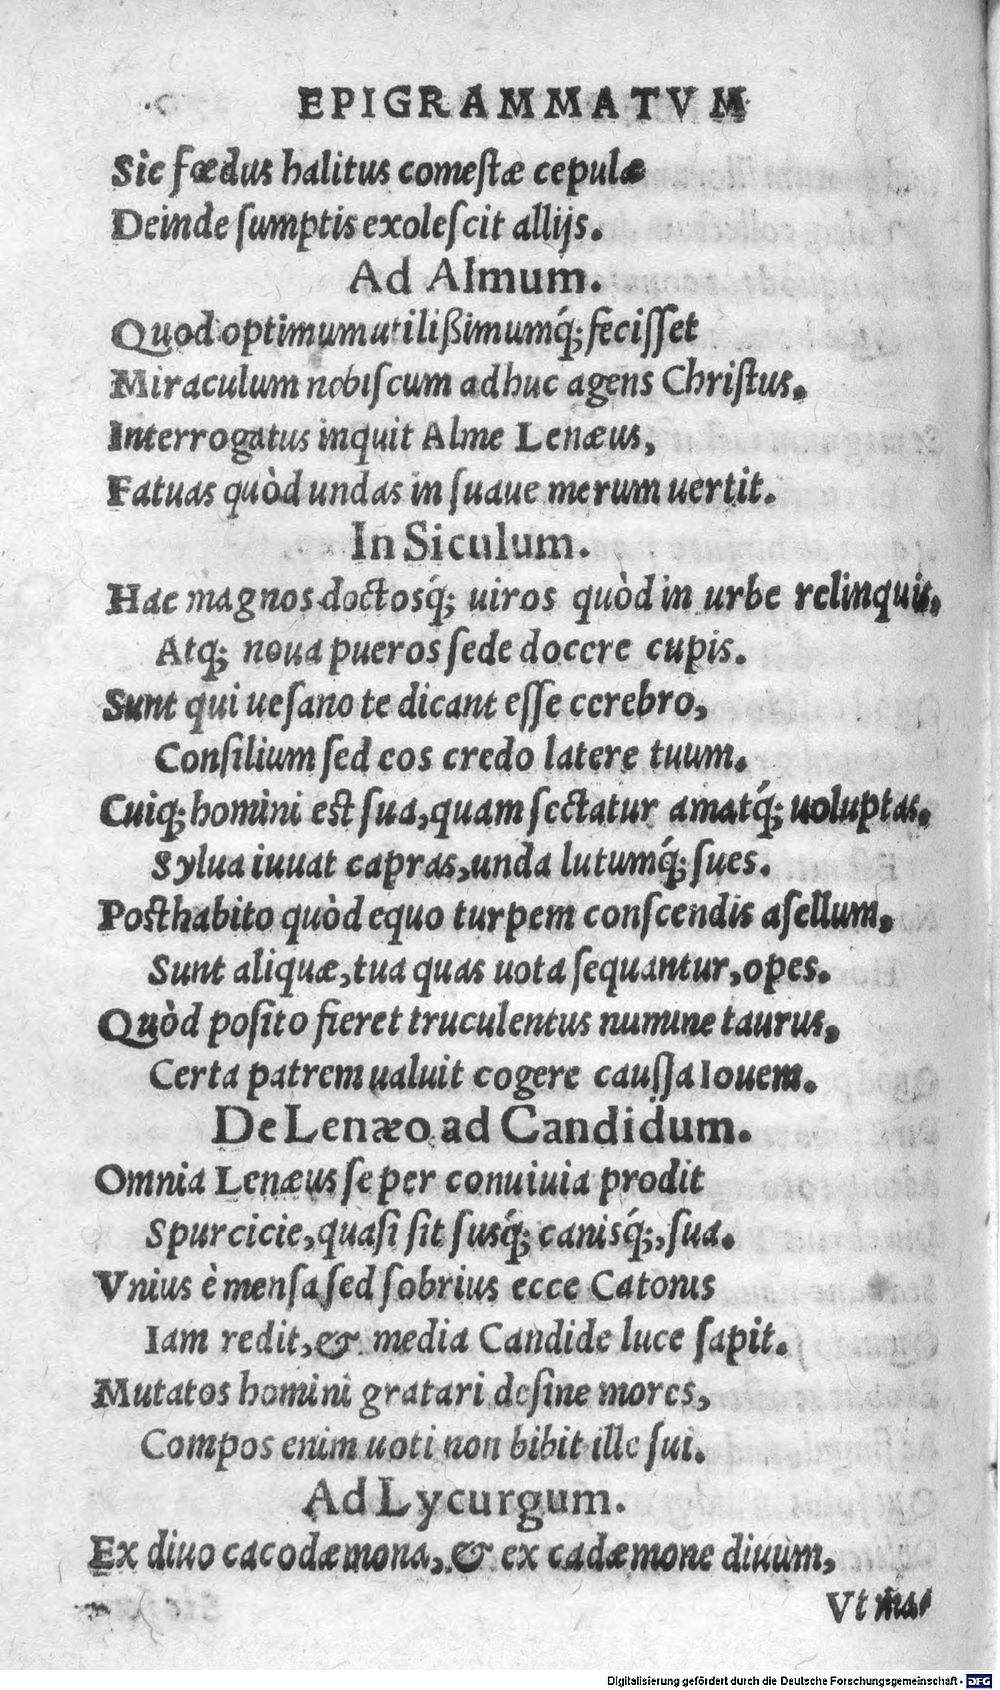 EPIGRAMMATVM
Sic fœdus halitus comestæ cepulæ
Deinde sumptis exolescit allijs.
Ad Almum.
Quod optimum utilißimumq́; fecisset
Miraculum nobiscum adhuc agens Christus.
Interrogatus inquit Alme Lenæus,
Fatuas quòd undas in suaue merum uertit.
In Siculum.
Hac magnos doctosq́; uiros quòd in urbe relinquis,
Atq; noua pueros sede docere cupis.
Sunt qui uesano te dicant esse cerebro,
Consilium sed eos credo latere tuum.
Cuiq; homini est sua, quam sectatur amatq́; uoluptas,
Sylua iuuat capras, unda lutumq́; sues.
Posthabito quòd equo turpem conscendis asellum,
Sunt aliquæ, tua quas uota sequantur, opes.
Quòd posito fieret truculentus numine taurus,
Certa patrem ualuit cogere caussa Iouem.
De Lenæo ad Candidum.
Omnia Lenæus se per conuiuia prodit
Spurcicie, quasi sit susq́; canisq́;, sua.
Vnius è mensa sed sobrius ecce Catonis
Iam redit, & media Candide luce sapit.
Mutatos homini gratari desine mores,
Compos enim uoti non bibit ille sui.
Ad Lycurgum.
Ex diuo cacodæmona, & ex cadæmone diuum,
Vt ma-
Digitalisierung gefördert durch die Deutsche Forschungsgemeinschaft - DFG